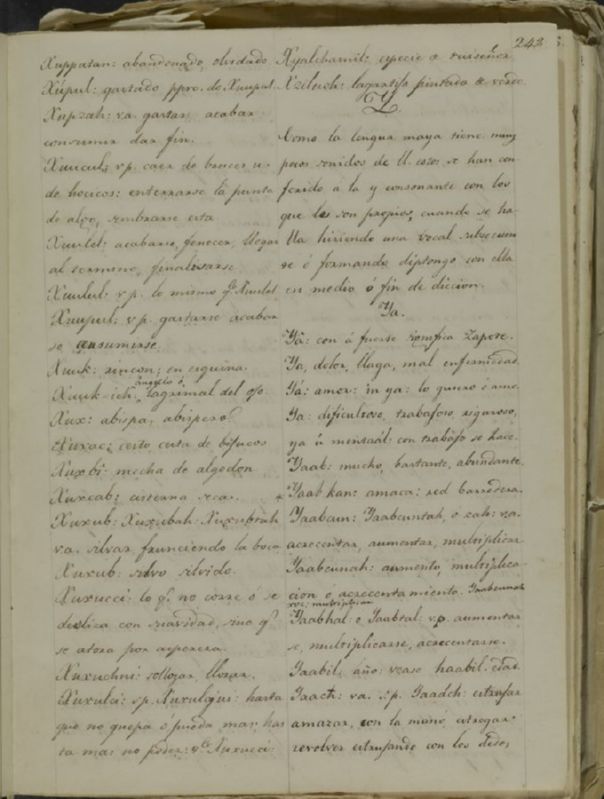 242
Xuppatan: abandonado, olvidado.
Xúpul: gastado ppro. de Xuupul.
Xupzah: va. gastar, acabar
consumir dar fin.
Xuucul: vp. caer de bruces u
de hocicos: enterrarse la punta
de algo, sembrarse esta
Xuulel: acabarse, fenecer, llegar
al termino, finalisarse.
Xuulul: vp. lo mismo qe. Xuulel
Xuupul: vp. gastarse acabar
se consumirse.
Xuuk: rincon: en esquina.
angulo ó
Xuuk-ich: lagrimal del ojo.
Xux: abispa, abispero
Xuxac: cesto de bejucos
Xuxbi: mecha de algodon
Xuxcab: cisterna seca.
Xuxub: Xuxubah: Xuxubtah
va. silvar frunciendo la boca
Xuxub: silvo silvido.
Xuxucci: lo q. no corre ó se
desliza con suavidad, sino qe
se atora por aspereza.
Xuxuchni: sollozar, llorar.
Xuxulci: vp. Xuxulquí: hasta
que no quepa ó pueda mas: has
ta mas no poder: Xuxucci:
Xyalchamil: especie de ruiseñor
Xzeluch: lagartija pintada de verde
Y.
Como la lengua maya tiene muy
pocos sonidos de ll. estos se han con
ferido á la y consonante con los
que les son propios, cuando se ha
lla hiriendo una vocal subsecuen
te ó formando diptongo con ella
en medio ó fin de diccion.
Ya.
Yá: con á fuerte significa Zapote.
Ya, dolor, llaga, mal enfermedad
Yá: amor: in ya: lo quiero ó amo.
Ya: dificultoso, trabajoso, rigoroso,
ya ú mentaál: con trabajo se hace.
Yaab: mucho, bastante, abundante.
Yaab kan: amaca: red barredera.
Yaabcun: Yaabcuntah, o zah: va.
acrecentar, aumentar, multiplicar
Yaabcunah: aumento, multiplica
cion o acrecentamiento. Yaabcunah
voz: multiplicar
Yaabhal: o Yaabtal: vp. aumentar
se, multiplicarse, acrecentarse.
Yaabil, año: vease haabil. edad.
Yaach: va. sp. Yaadch: estrujar
amazar, con la mano, estregar
revolver estrujando con los dedos,